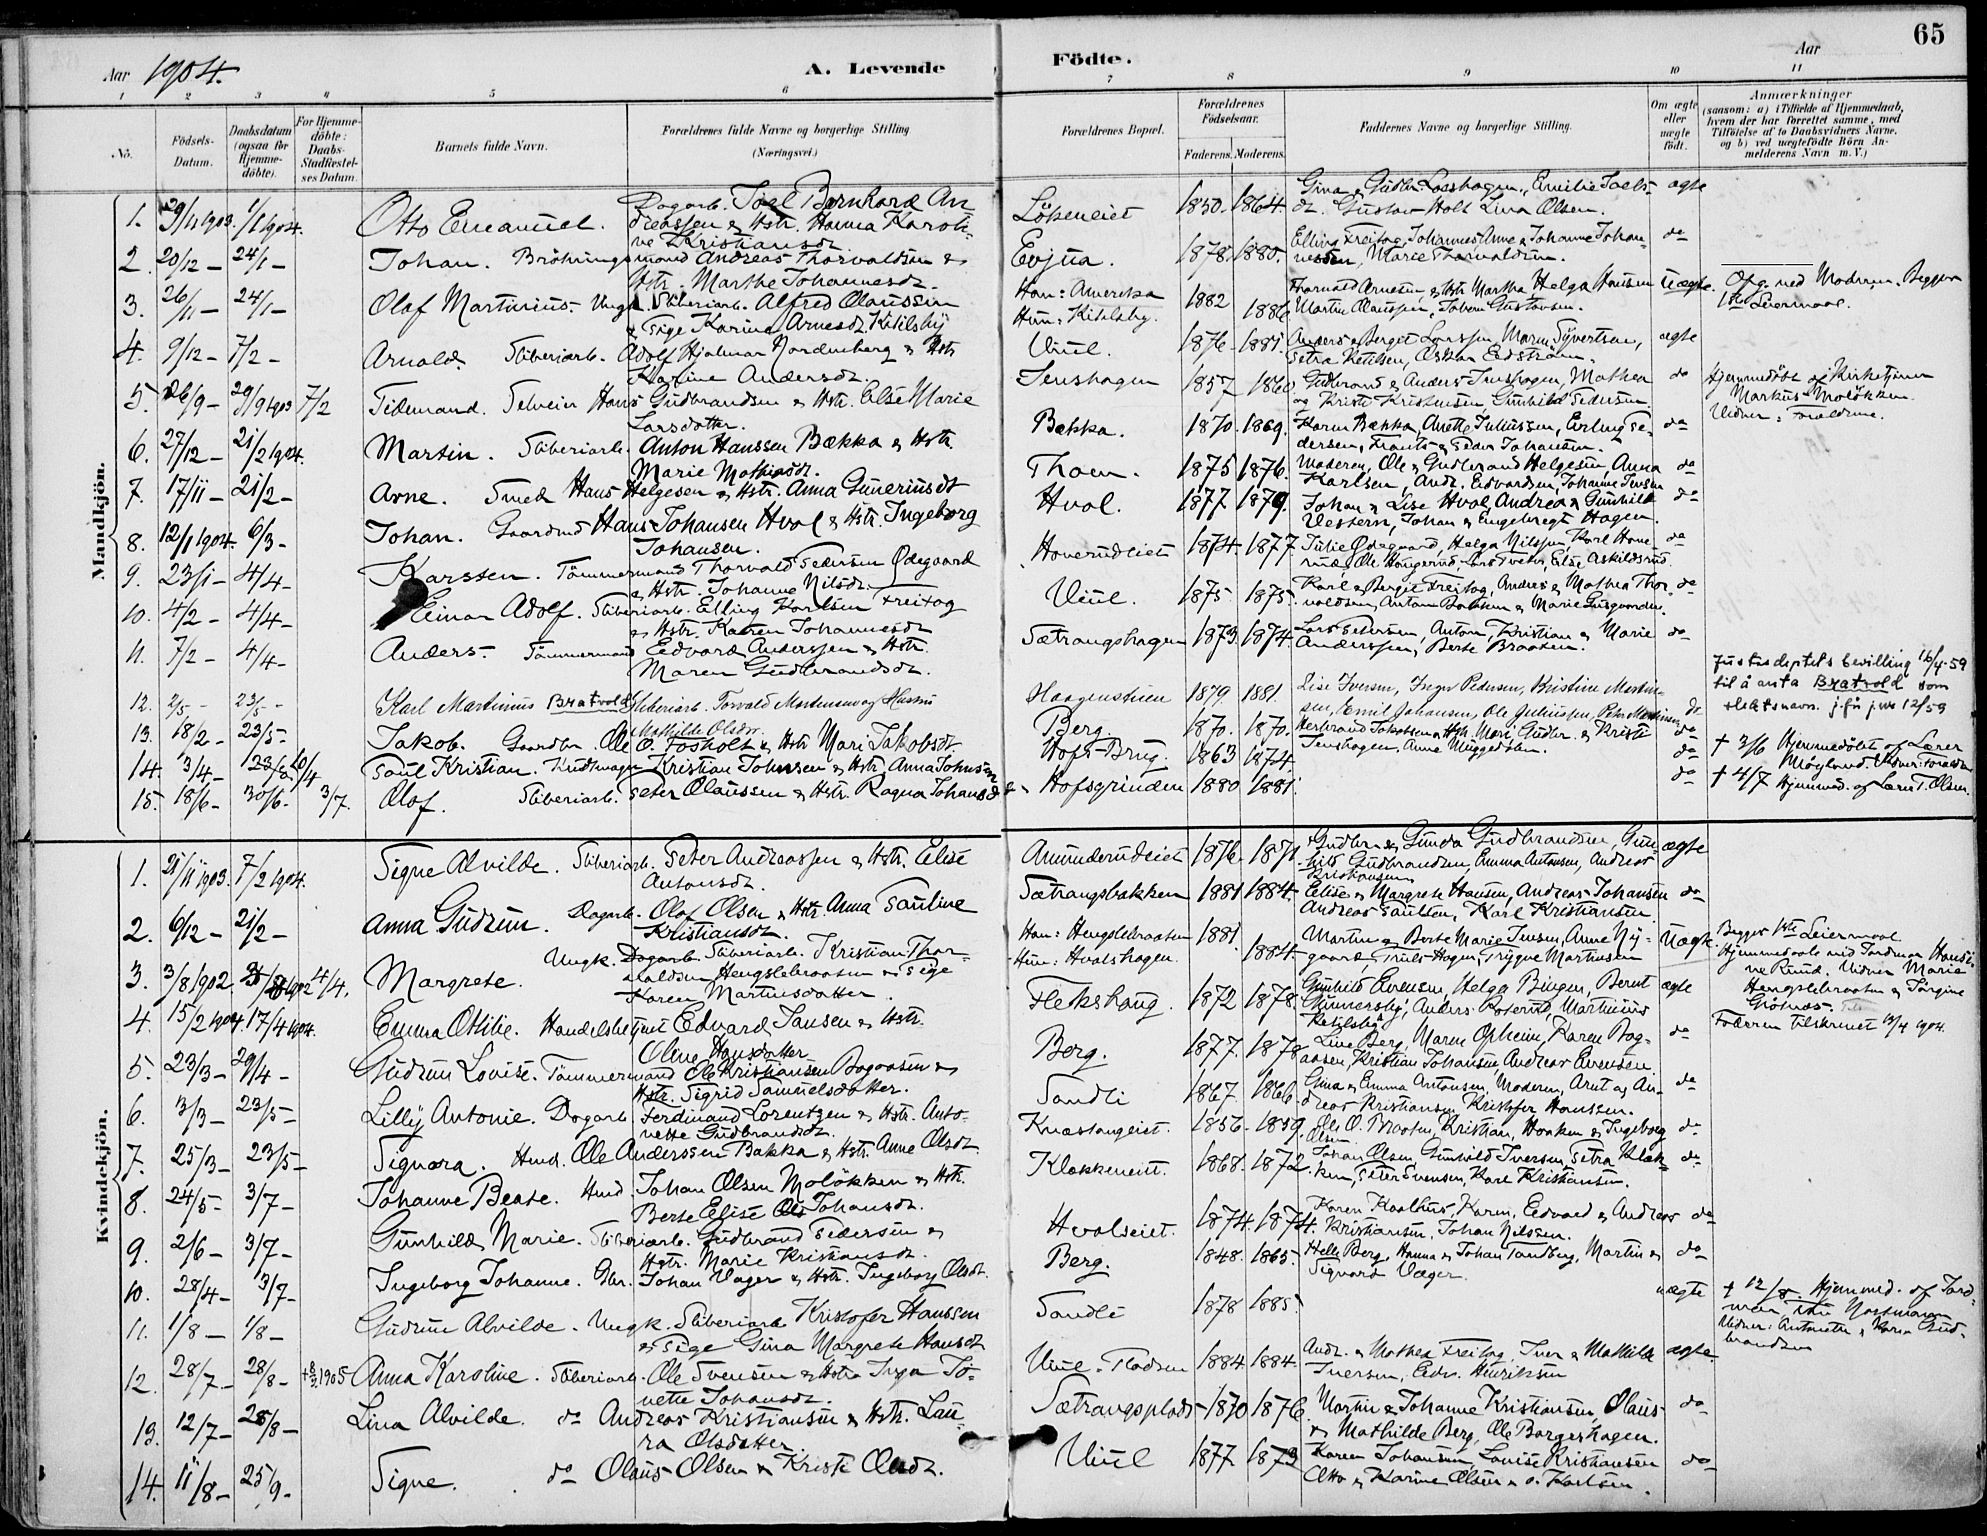 65
Aar 1904.
A. Levende
Födte.
Aar
1 2 3 4 5 6 7 8 9 10 11
No.
Födsels-Datum.
Daabsdatum (ogsaa for Hjemme-döbte).
For Hjemme-döbte: Daabs-Stadfæstel-ses Datum.
Barnets fulde Navn.
Forældrenes fulde Navne og borgerlige Stilling
(Næringsvei.)
Forældrenes Bopæl.
Forældrenes Födselsaar.
Faderens. Moderens.
Faddernes Navne og borgerlige Stilling.
Om ægte eller uægte födt.
Anmærkninger
(saasom: a) i Tilfælde af Hjemmedaab, hvem der har forrettet samme, med Tilföielse af to Daabsvidners Navne. og b) ved uægtefödte Börn An-melderens Navn m. V.)
Mandkjön.
1. 29/11 1903. 1/1 1904. Otto Emanuel. Dagarb. Joel Bernhard An-
dreassen & Hstr. Hanna Karoli-
ne Kristiansdt. Løkeneiet 1850. 1864. Gustav Holt Lina Olsen. ægte
2. 20/12 — 24/1 — Johan. Andreas Thorvaldsen &
Hstr. Marthe Johannesdt. Evjua. 1878. 1880. Marie Thorvaldsen. do
3. 26/11 — 24/1 — Olaf Martinius. Ungk. Sliberiarb. Alfred Olaussen
& Pige Karine Arnesdt. Kitilsby Han: Amerika
Hun: Kitelsby. 1882 1886 Martin Olaussen, Uægte.
4. 9/12 — 7/2 — Arnold. Sliberiarb. Adolf Hjalmar Nordenberg & Hstr
Karine Andersdt. Viul. 1876 — 1881. Petra Ketilsen, Oskar Edström. ægte
5. 26/9 — 29/9 1903 7/2 Tidemand. Selveier Hans Gudbrandsen & Hstr. Else Marie
Larsdatter. Jenshagen 1857 1860 Gudbrand & Anders Jenshagen, Mathea
og Kristi Kristensen, Gunhild Pedersen. do Hjemmedöbt af Kirketjener
Markus Moløkken.
Vidner: Forældrene.
6. 27/12 — 21/2 1904. Martin. Sliberiarb. Anton Hanssen Bækka & Hstr.
Marie Mathisdt. Bækka. 1870. 1869. Karen Bækka, Anette Juliussen, Erling Pe-
dersen, Frants & Peder Johansen. do
7. 17/11 — 21/2 — Arne. Smed Hans Helgesen & Hstr. Anna Guneriusdt Thoen. 1875 1876. Moderen, Ole & Gudbrand Helgesen, Anna
Karlsen, Andr. Edvardsen, Johanne Jensen do
8. 12/1 1904. 6/3 — Johan. Gaardmd Hans Johansen Hval & Hstr. Ingeborg
Johansen. Hval. 1877 1879. Johan & Lise Hval, Andrea & Gunhild
Vestern, Johan & Engebregt Hagen. do
9. 23/1 — 4/4 — Karsten. Tömmermand Thorvald Pedersen Ødegaard
& Hstr. Johanne Nilsdt. Hverudeiet 1874. 1877. Julie Ødegaard, Helga Nilssen, Karl Hove-
rud, do
10. 4/2 — 4/4 — Einar Adolf. Sliberiarb. Elling Karlsen Freitag
& Hstr. Karen Johannesdt Viul. 1875. 1875. Karl & Bergit Freitag, Andreas & Mathea Thor-
valdsen, do
11. 7/2 — 4/4 — Anders. Tömmermand Edvard Anderssen & Hstr.
Maren Gudbrandsdt. Sætrangshagen 1873. 1874. Lars Pedersen, Anton, Kristian & Marie
Anderssen, Berte Braaten. do
12. 2/5 — 23/5 — Karl Martinius Bratvold Sliberiarb. Torvald Martinsen og Hustru
Mathilde Olsdtr. Haagenstuen 1879. 1881. Lise Iversen, Inger Pedersen, Kristine Martin-
sen, Emil Johansen, Ole Juliussen, Petr Martinsen do Justisdeptets bevilling 16/4-59
til å anta Bratvold som
slektsnavn. jfr jnr 12/59
13. 18/2 — 23/5 — Jakob. Gaardbr. Ole O. Fosholt & Hstr Mari Jakobsdt. Berg. 1870. 1870. do
14. 3/4 — Paul Kristian. Kristian Johnsen & Hstr. Anna Johnsen Hofs-Brug. 1863 1874. do † 3/6 Hjemmedöbt af Lærer
Møglund.
15. 18/6 — 30/6 — 3/7. Olaf. Sliberiarb. Peter Olaussen & Hstr. Ragna Johansdt. Hofsgrinden 1880 1881. do † 4/7 Hjemmed. af Lærer T. Olsen.
Kvindekjön.
1. 21/11 1903. 7/2 1904. Signe Alvilde. Sliberiarb. Peter Andreassen & Hstr. Elise
Antonsdt. Amunderudeiet 1876. 1871. Gudbr. & Gunda Gudbrandsen, Gun-
hild Gudbrandsen, Emma Antonsen, Andreas
Kristiansen ægte
2. 6/12 — 21/2 — Anna Gudrun. Dagarb. Olaf Olsen & Hstr. Anna Pauline
Kristiansdt. Sætrangsbakken 1881 1884. Elise & Margrete Hansen, Andreas Johansen
Andreas Paulsen, Karl Kristiansen. do
3. 3/8 1902. 4/4. Margrete. Ungk. Dagarb. Sliberiarb. Kristian Thor-
valdsen Hengslebraaten & Pige
Karen Martinsdatter. Han: Hengslebraaten
Hun: Hvalshagen. 1881. 1884. Martin & Berte Marie Jensen, Anne Ny-
gaard, Truls Hagen, Trygve Martinsen Uægte. Begges 1ste Leiermaal
Hjemmedöbt
Vidner Marie
Hengslebraaten & Jörgine
Grötnæs.
Faderen tilskrevet 13/4 1904.
4. 15/2 1904. 17/4 1904. Emma Otilie. Handelsbetjent Edvard Jansen & Hstr.
Oline Hansdatter Flekshaug. 1872 1878. Gunhild Evensen, Helga Bingen, Bernt
Gunnersby, Anders Roserud, Martinius
Ketilsby ægte
5. 23/3 — 29/4 — Gudrun Lovise. Tömmermand Ole Kristiansen Bagaasen &
Hstr. Sigrid Samuelsdatter. Berg. 1877. 1878 Line Berg, Maren Opheim, Karen Bag-
aasen, Kristian Johansen, Andreas Evensen. do
6. 3/3 — 23/5 — Lilly Antonie. Dagarb. Ferdinand Lorentzen & Hstr. Anto-
nette Gudbrandsdt. Sandli 1867. 1866. Gina & Emma Antonsen, Moderen, Arnt og An-
dreas Kristiansen Kristofer Hanssen. do
7. 25/3 — 23/5 — Signora. Hmd. Ole Anderssen Bakka & Hstr. Anne Olsdt. Knæstangeiet. 1856. 1859. Ole O. Braaten, Kristian, Haaken & Ingeborg
Olsen do
8. 24/5 — 3/7 — Johanne Beate. Hmd. Johan Olsen Moløkken & Hstr.
Berte Elise Johansdt. Klækkeneiet. 1868. 1872. Johan Olsen Gunhild Iversen, Petra Klæk-
ken, Peter Svensen, Karl Kristiansen. do
9. 2/6 — 3/7 — Gunhild Marie. Sliberiarb. Gudbrand Pedersen &
Hstr. Marie Kristiansdt. Hvalseiet. 1874. 1874. Karen Kaalhus, Karen, Edvard & Andreas
Kristiansen, Johan Nilssen. do
10. 28/4 — 3/7 — Ingeborg Johanne. Gbr. Johan Vager & Hstr. Ingeborg Olsdt. Berg. 1848. 1865. Helle Berg, Hanna & Johan Tandberg, Martin &
Sigvard Væger. do
11. 1/8 — 1/8 — Gudrun Alvilde. Ungk. Sliberiarb. Kristofer Hanssen
& Pige Gina Margrete Hansdt. Sandli 1878 1885. uægte † 12/8. Hjemmed. af Jord-
mor
Vidner: Antonette & Karen Gud-
brandsen
12. 28/7 — 28/8 — † 1905 Anna Karoline. Sliberiarb. Ole Svensen & Hstr. Inga Jo-
nette Johansdt. Viul. 1884. 1884. Andr. & Mathea Freitag, Iver & Mathilde
Iversen, Edv. Henriksen ægte.
13. 12/7 — 28/8 — Lina Alvilde. do Andreas Kristiansen & Hstr. Lau-
ra Olsdatter. Sætrangsplads 1870 1876 Martin & Johanne Kristiansen, Olaus
& Mathilde Berg, Ole Borgershagen. do
14. 11/8 — 25/9 — Signe. do Olaus Olsen & Kristi Olsdt. Viul 1877 1873 Karen Johansen, Louise Kristiansen
Otto & Karine Olsen & O. Karlsen. do